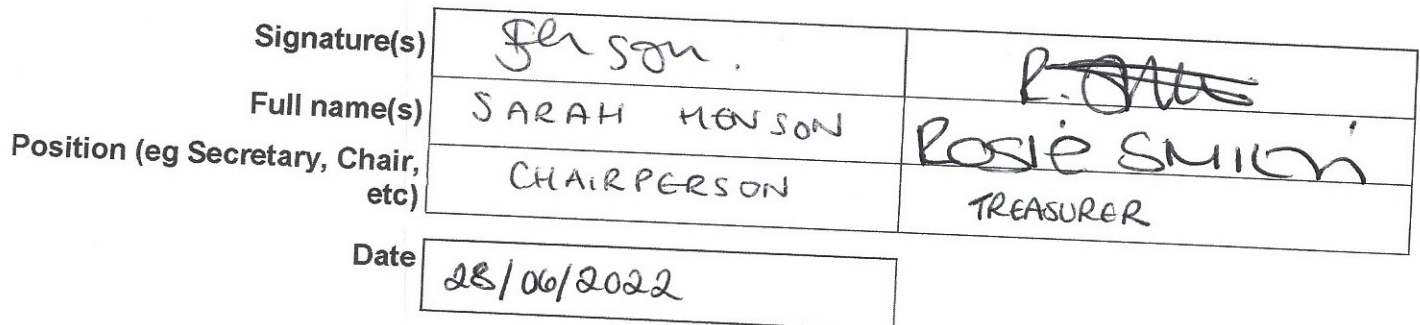 Signature(s)
Full name(s) SARAH HENSON Rosie SMITH
Position (eg Secretary, Chair, etc) CHAIRPERSON TREASURER
Date 28/06/2022